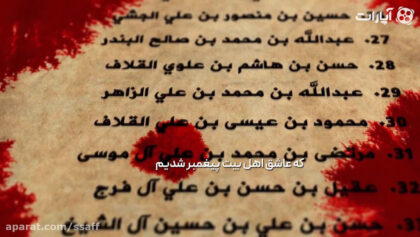 آپارات
حسين بن منصور بن علي
27- عبدالله بن محمد بن صالح البندر
28- حسن بن هاشم بن علوي القلاف
29- عبدالله بن محمد بن علي الزاهر
30- محمود بن عيسى بن علي القلاف
31- مرتضى بن محمد بن علي آل موسى
که عاشق اهل بیت پیغمبر شدیم
عقيل بن حسن بن علي آل فرج
حسن بن علي بن حسين آل
aparat.com/ssaff